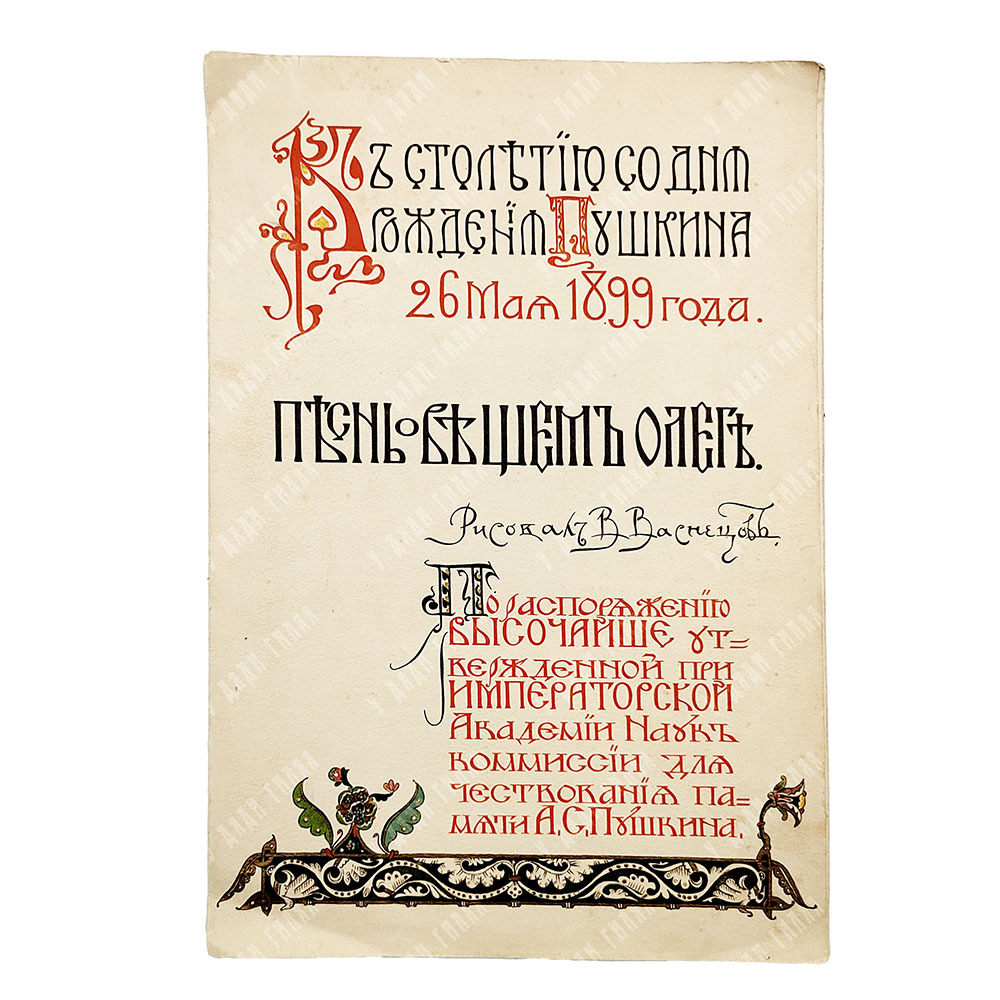 Къ столѣтїю со дня
рожденїя Пушкина
26 Мая 1899 года.
Пѣснь о Вѣщемъ Олегѣ.
Рисовалъ В. Васнецовъ.
По распоряженїю
ВЫСОЧАЙШЕ ут=
вержденной при
ИМПЕРАТОРСКОЙ
Академїи Наукъ
коммиссїи для
чествованїя па=
мяти А.С.Пушкина.